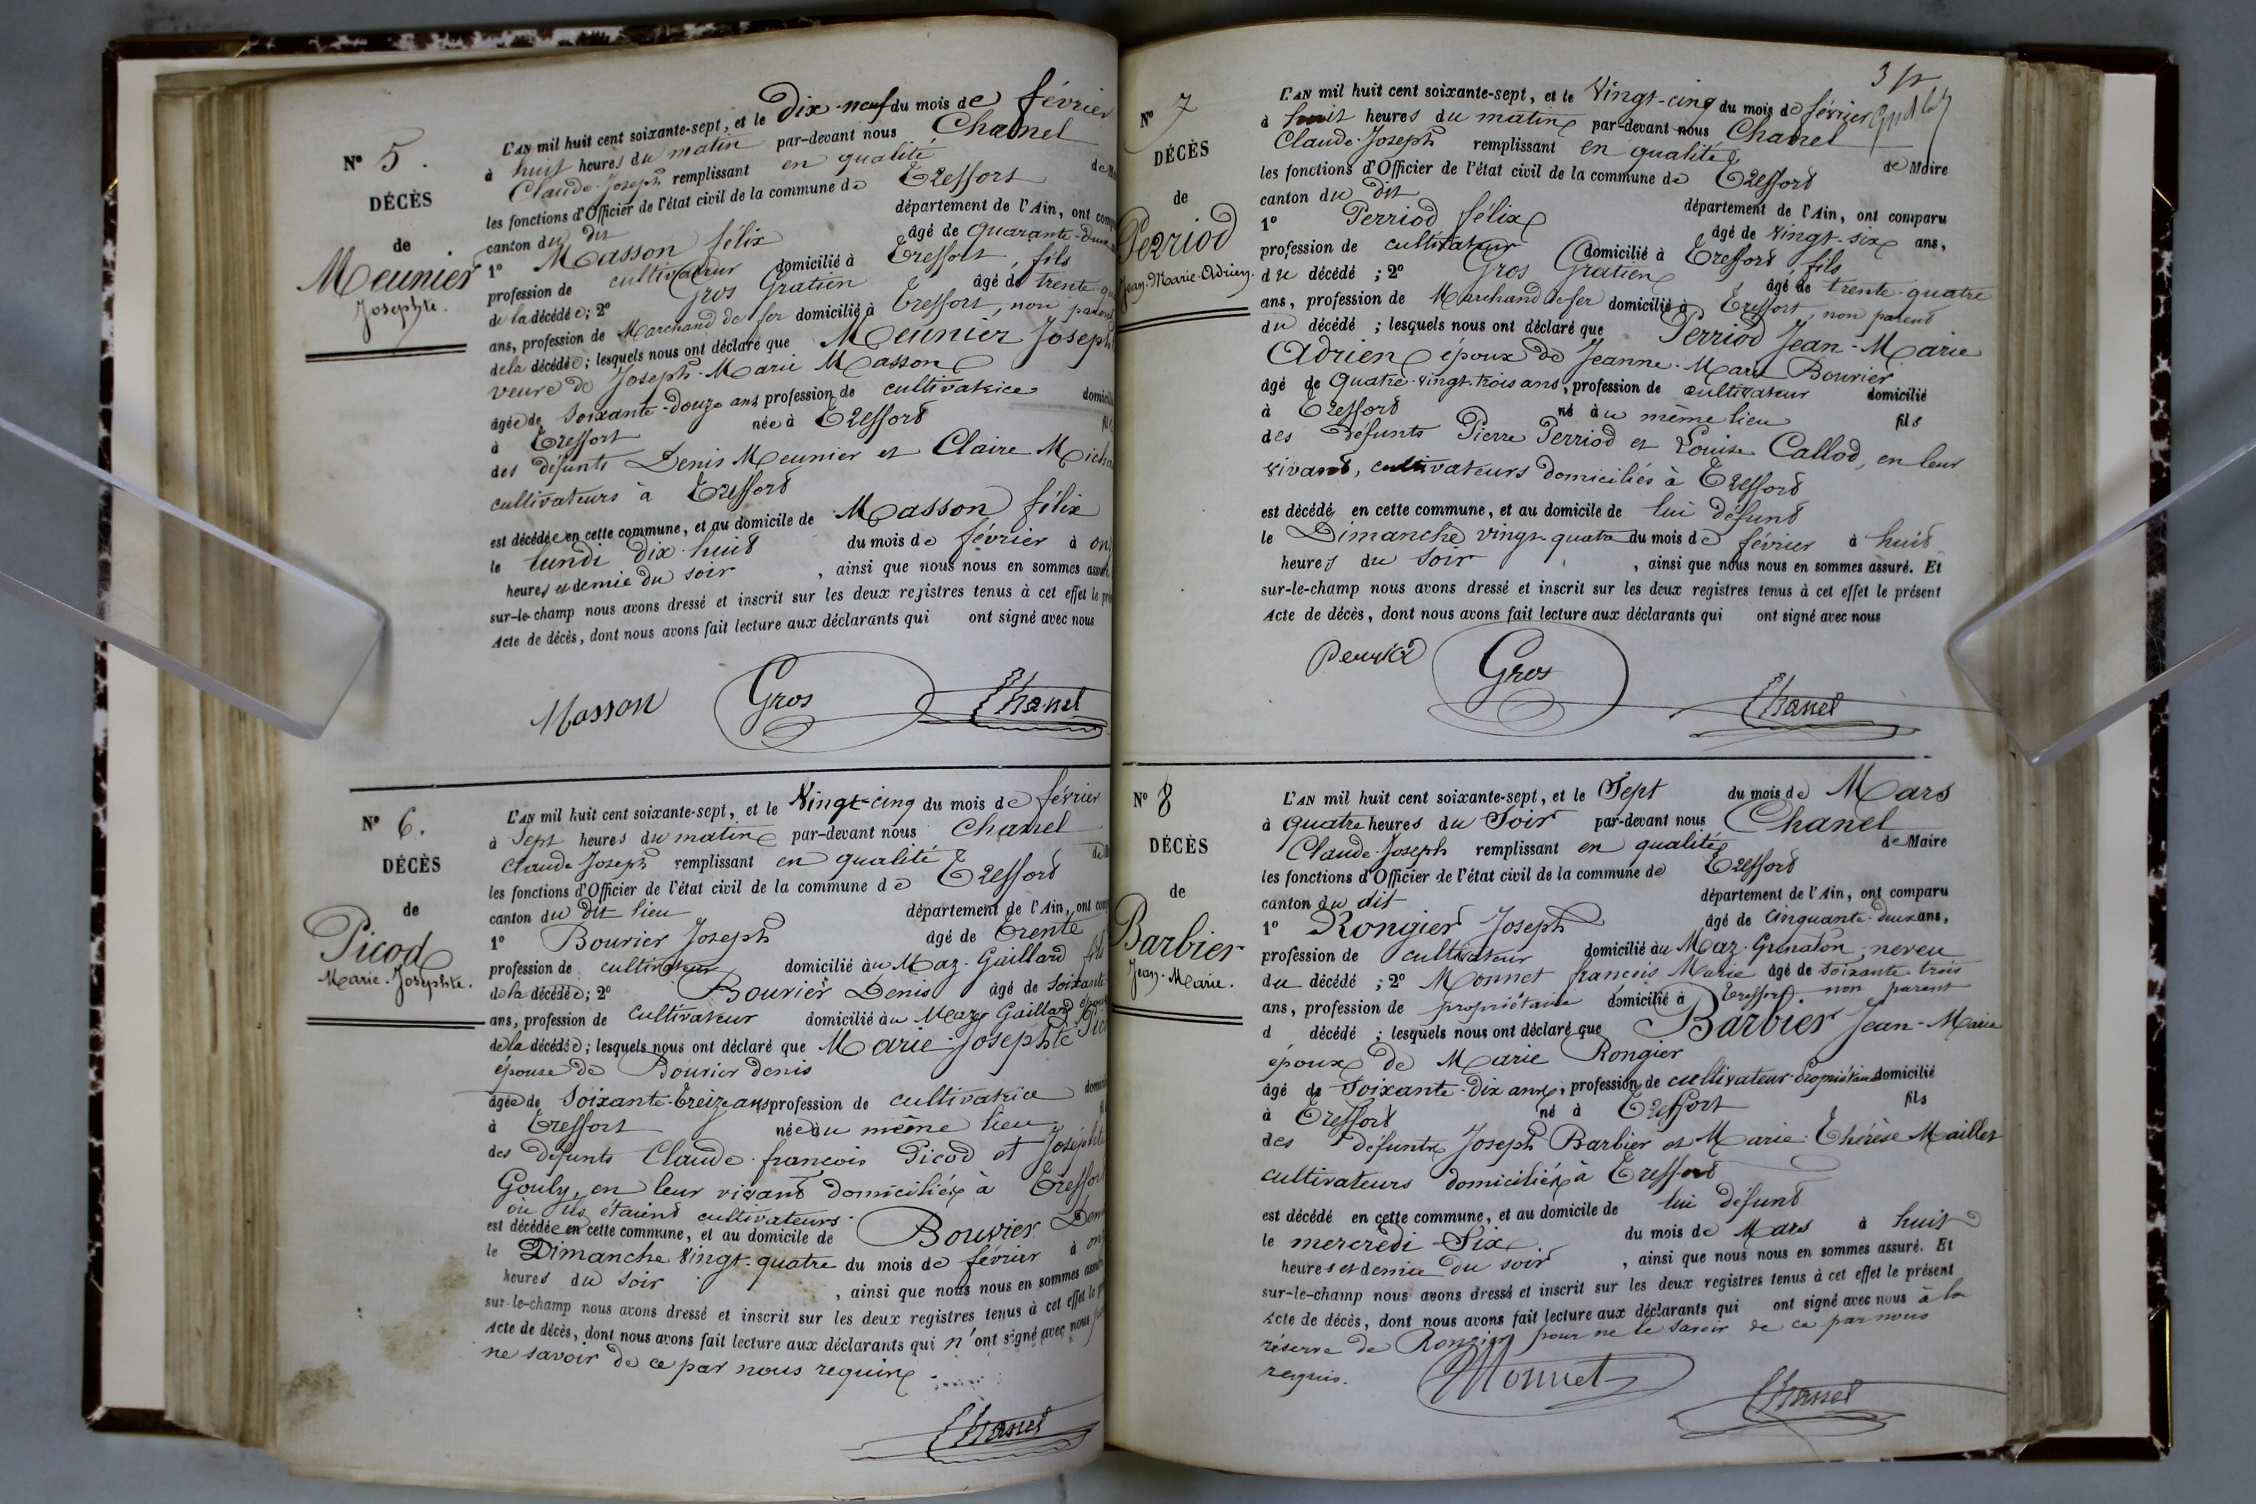 N° 5.
DÉCÈS
de
Meunier
Josephte.
L'AN mil huit cent soixante-sept, et le Dix-neuf du mois de février
à huit heures du matin par-devant nous Chanel
Claude-Joseph remplissant en qualité de
les fonctions d'Officier de l'état civil de la commune de Treffort
canton du dit département de l'Ain, ont
1° Masson félix âgé de quarante-deux
profession de cultivateur domicilié à Treffort, fils
de la décédée; 2° Gros Gratien âgé de trente
ans, profession de Marchand de fer domicilié à Treffort, non parent
de la décédée; lesquels nous ont déclaré que Meunier Joseph
veuve de Joseph-Marie Masson
âgée de soixante-douze ans profession de cultivatrice
à Treffort née à Treffort
des défunts Denis Meunier et Claire
cultivateurs à Treffort
est décédée en cette commune, et au domicile de Masson félix
le lundi dix-huit du mois de février à
heures et demie du soir, ainsi que nous nous en sommes
sur-le-champ nous avons dressé et inscrit sur les deux registres tenus à cet effet le
Acte de décès, dont nous avons fait lecture aux déclarants qui ont signé avec nous
Masson Gros Chanel
N° 6.
DÉCÈS
de
Picod
Marie-Josephte.
L'AN mil huit cent soixante-sept, et le Vingt-cinq du mois de février
à Sept heures du matin par-devant nous Chanel
Claude-Joseph remplissant en qualité
les fonctions d'Officier de l'état civil de la commune de Treffort
canton du dit lieu département de l'Ain, ont
1° Bouvier Joseph âgé de trente
profession de cultivateur domicilié au Maz-Gaillard fils
de la décédée; 2° Bouvier Denis âgé de soixante
ans, profession de cultivateur domicilié au Maz Gaillard époux
de la décédée; lesquels nous ont déclaré que Marie-Josephte
épouse de Bouvier denis
âgée de soixante-treize ans profession de cultivatrice
à Treffort née au même lieu
des défunts Claude-françois Picod et Joséphte
Gouly, en leur vivant domiciliés à Treffort
où ils étaient cultivateurs.
est décédée en cette commune, et au domicile de Bouvier
le Dimanche vingt-quatre du mois de février à
heures du soir, ainsi que nous nous en sommes
sur-le-champ nous avons dressé et inscrit sur les deux registres tenus à cet effet le
Acte de décès, dont nous avons fait lecture aux déclarants qui n'ont signé avec nous
ne savoir de ce par nous requis
Chanel
N° 7
DÉCÈS
de
Perriod
Jean-Marie-Adrien.
L'AN mil huit cent soixante-sept, et le Vingt-cinq du mois de février
à huit heures du matin par-devant nous Chanel
Claude-Joseph remplissant en qualité de Maire
les fonctions d'Officier de l'état civil de la commune de Treffort
canton du dit département de l'Ain, ont comparu
1° Perriod félix âgé de vingt-six ans,
profession de cultivateur domicilié à Treffort, fils
du décédé; 2° Gros Gratien âgé de trente-quatre
ans, profession de Marchand de fer domicilié à Treffort, non parent
du décédé; lesquels nous ont déclaré que Perriod Jean-Marie
Adrien époux de Jeanne-Marie Bouvier
âgé de quatre-vingt-trois ans, profession de cultivateur domicilié
à Treffort né au même lieu fils
des défunts Pierre Perriod et Louise Callod, en leur
vivant, cultivateurs domiciliés à Treffort
est décédé en cette commune, et au domicile de lui défunt
le Dimanche vingt-quatre du mois de février à huit
heures du soir, ainsi que nous nous en sommes assuré. Et
sur-le-champ nous avons dressé et inscrit sur les deux registres tenus à cet effet le présent
Acte de décès, dont nous avons fait lecture aux déclarants qui ont signé avec nous
Gros Chanel
N° 8
DÉCÈS
de
Barbier
Jean-Marie.
L'AN mil huit cent soixante-sept, et le Sept du mois de Mars
à quatre heures du Soir par-devant nous Chanel
Claude-Joseph remplissant en qualité de Maire
les fonctions d'Officier de l'état civil de la commune de Treffort
canton du dit département de l'Ain, ont comparu
1° Rongier Joseph âgé de cinquante-deux ans,
profession de cultivateur domicilié au Maz-Grenaton, neveu
du décédé; 2° Monnet francois Marie âgé de soixante-trois
ans, profession de propriétaire domicilié à Treffort. non parent
d décédé; lesquels nous ont déclaré que Barbier Jean-Marie
époux de Marie Rongier
âgé de soixante-dix ans, profession de cultivateur-propriétaire domicilié
à Treffort né à Treffort fils
des défunts Joseph Barbier et Marie-Thérèse Maillet
cultivateurs domiciliés à Treffort
est décédé en cette commune, et au domicile de lui défunt
le mercredi Six du mois de Mars à huit
heures et demie du soir, ainsi que nous nous en sommes assuré. Et
sur-le-champ nous avons dressé et inscrit sur les deux registres tenus à cet effet le présent
Acte de décès, dont nous avons fait lecture aux déclarants qui ont signé avec nous à la
réserve de Rongier pour ne le savoir de ce par nous
requis.
Monnet Chanel